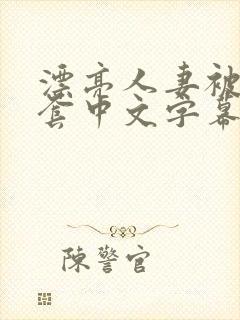 漂亮人妻被
套中文字幕
陳警官